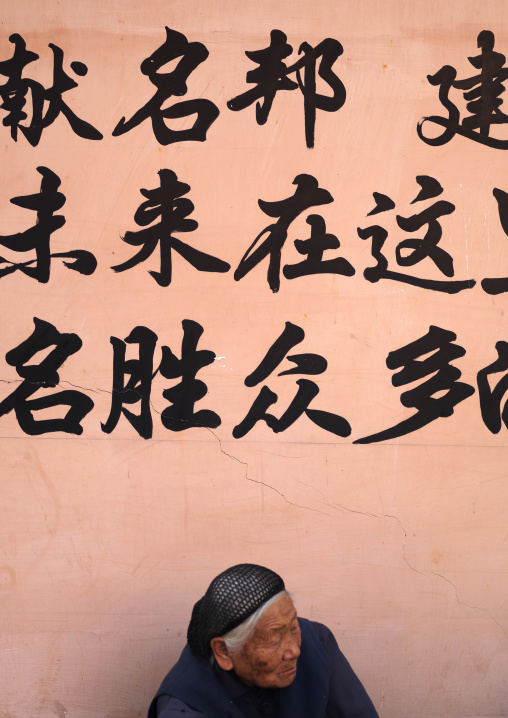 献名邦建
未来在这
名胜众多